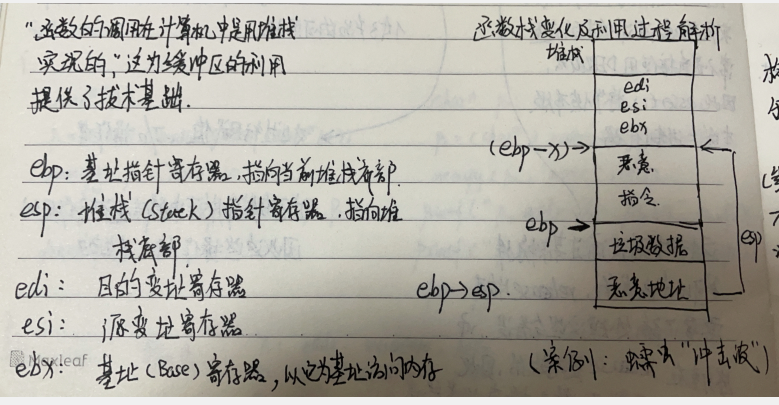 "函数的调用在计算机中是用堆栈
实现的,"这为缓冲区的利用
提供了技术基础.
ebp: 基址指针寄存器,指向当前堆栈底部.
esp: 堆栈(Stack)指针寄存器,指向堆
栈底部.
edi: 目的变址寄存器
esi: 源变址寄存器
ebx: 基址(Base)寄存器,以它为基址访问内存
Maxleaf
函数栈变化及利用过程解析
堆栈
edi
esi
ebx
(ebp-x)→
恶意
指令
ebp →
垃圾数据
esp
ebp→esp.
恶意地址
(案例: 蠕虫"冲击波")